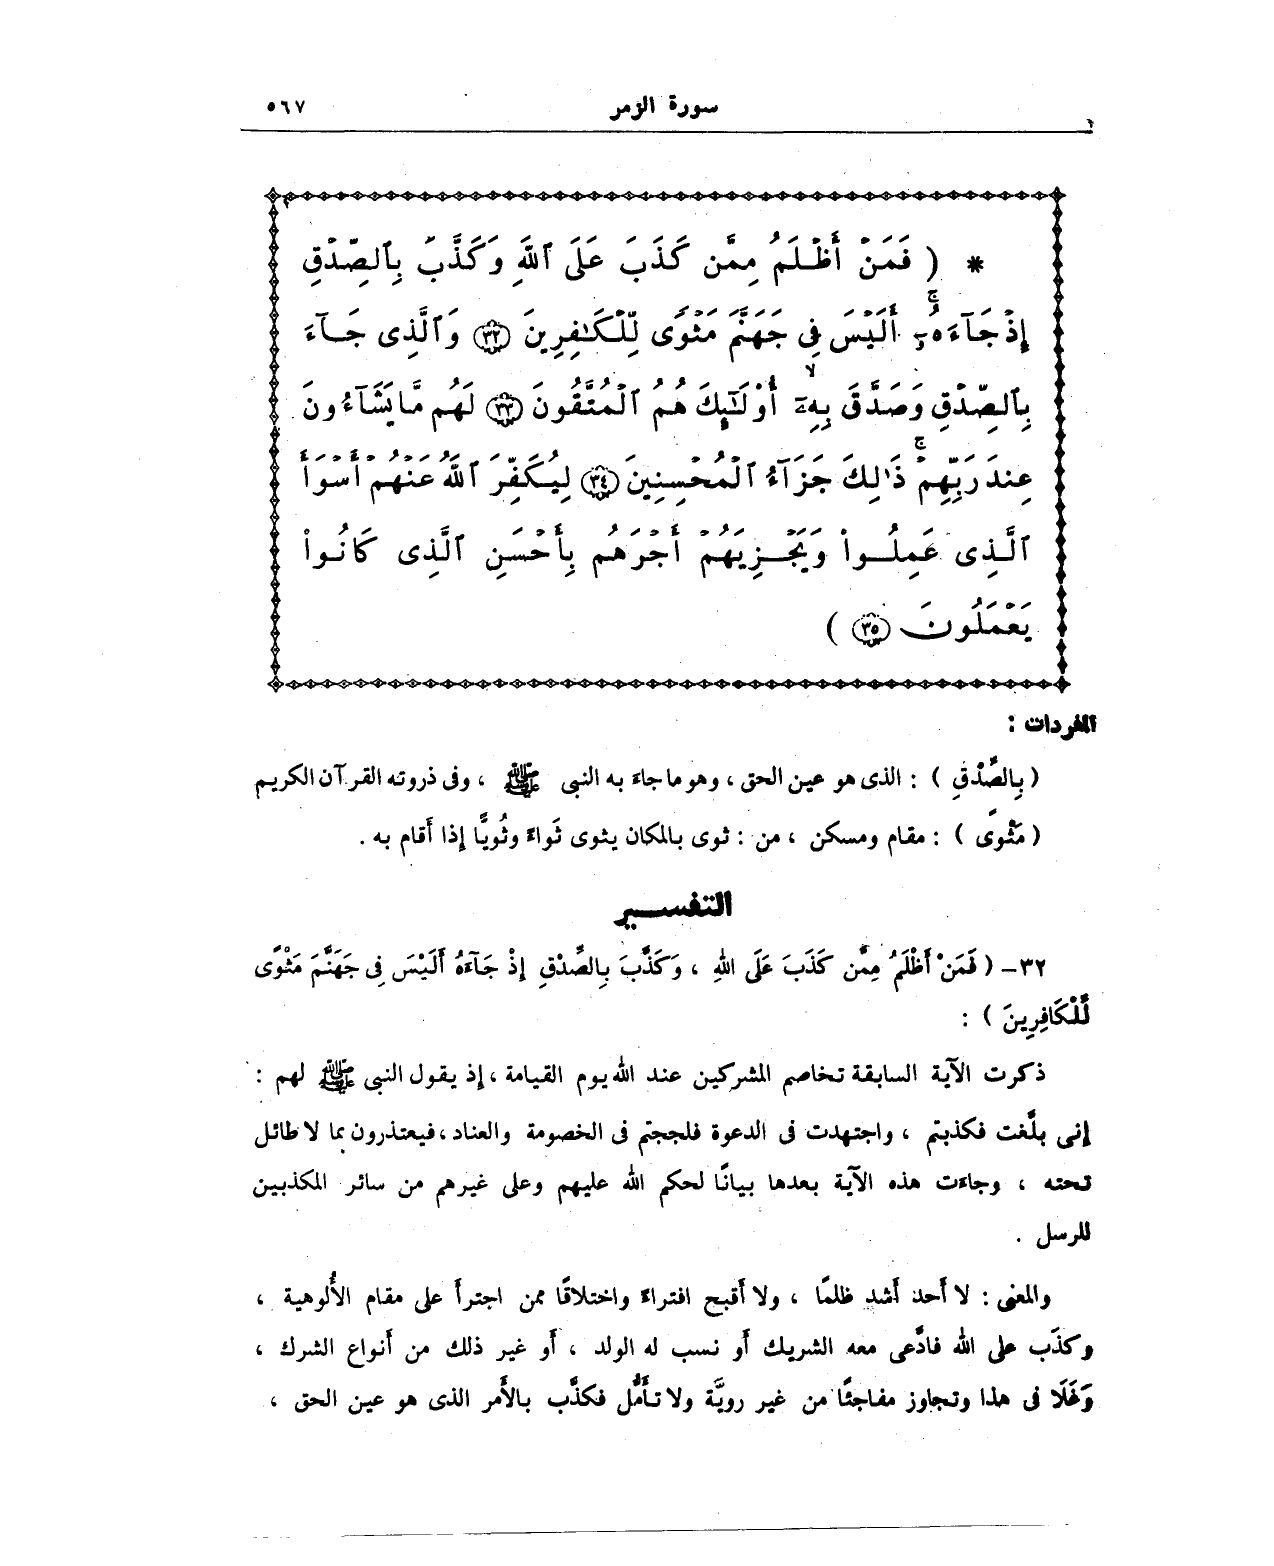 سورة الزمر ٥٦٧
* ( فَمَنْ أَظْلَمُ مِمَّن كَذَبَ عَلَى ٱللَّهِ وَكَذَّبَ بِٱلصِّدْقِ
إِذْ جَآءَهُۥٓ ۚ أَلَيْسَ فِى جَهَنَّمَ مَثْوًى لِّلْكَـٰفِرِينَ ﴿٣٢﴾ وَٱلَّذِى جَـآءَ
بِٱلصِّدْقِ وَصَدَّقَ بِهِۦٓ ۙ أُوْلَـٰٓئِكَ هُمُ ٱلْمُتَّقُونَ ﴿٣٣﴾ لَهُم مَّا يَشَآءُونَ
عِندَ رَبِّهِمْ ۚ ذَٰلِكَ جَزَآءُ ٱلْمُحْسِنِينَ ﴿٣٤﴾ لِيُكَفِّرَ ٱللَّهُ عَنْهُمْ أَسْوَأَ
ٱلَّذِى عَمِلُـوا۟ وَيَجْـزِيَهُمْ أَجْرَهُم بِأَحْسَنِ ٱلَّذِى كَانُوا۟
يَعْمَلُونَ ﴿٣٥﴾ )
المفردات :
( بِالصِّدْقِ ) : الذى هو عين الحق ، وهو ما جاءَ به النبى ﷺ ، وفى ذروته القرآن الكريم
( مَثْوًى ) : مقام ومسكن ، من : ثوى بالمكان يثوى ثَواءً وثُويًّا إذا أقام به .
التفســير
٣٢- ( فَمَنْ أَظْلَمُ مِمَّن كَذَبَ عَلَى اللهِ ، وَكَذَّبَ بِالصِّدْقِ إِذْ جَآءَهُ أَلَيْسَ فِى جَهَنَّمَ مَثْوًى
لِّلْكَافِرِينَ ) :
ذكرت الآية السابقة تخاصم المشركين عند الله يوم القيامة ، إذ يقول النبى ﷺ لهم :
إنى بلَّغت فكذبتم ، واجتهدت فى الدعوة فلججتم فى الخصومة والعناد ، فيعتذرون بما لا طائل
تحته ، وجاءَت هذه الآية بعدها بيانًا لحكم الله عليهم وعلى غيرهم من سائر المكذبين
للرسل .
والمعنى : لا أَحد أَشد ظلمًا ، ولا أَقبح افتراءً واختلاقًا ممن اجترأَ على مقام الأُلوهية ،
وكذَب على الله فادَّعى معه الشريك أَو نسب له الولد ، أَو غير ذلك من أَنواع الشرك ،
وَغَلَا فى هذا وتجاوز مفاجئًا من غير رويَّة ولا تأَمُّل فكذَّب بالأَمر الذى هو عين الحق ،